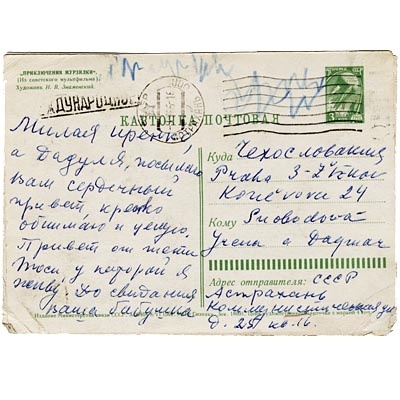 "ПРИКЛЮЧЕНИЯ МУРЗИЛКИ".
(Из советского мультфильма).
Художник Н. В. Знаменский.
МЕЖДУНАРОДНОЕ
КАРТОЧКА ПОЧТОВАЯ
3
Милая
а Дадуля, посылаю
вам сердечный
привет, крепко
обнимаю и целую.
Привет от тёти
Тоси, у которой я
живу. До свидания
ваша бабушка
Куда Чехословакия
Praha 3 - Žižkov
24
Кому Svobodová
a Dagmar
Адрес отправителя: СССР
Астрахань
Коммунистическая ул
д. 25 кв. 16.